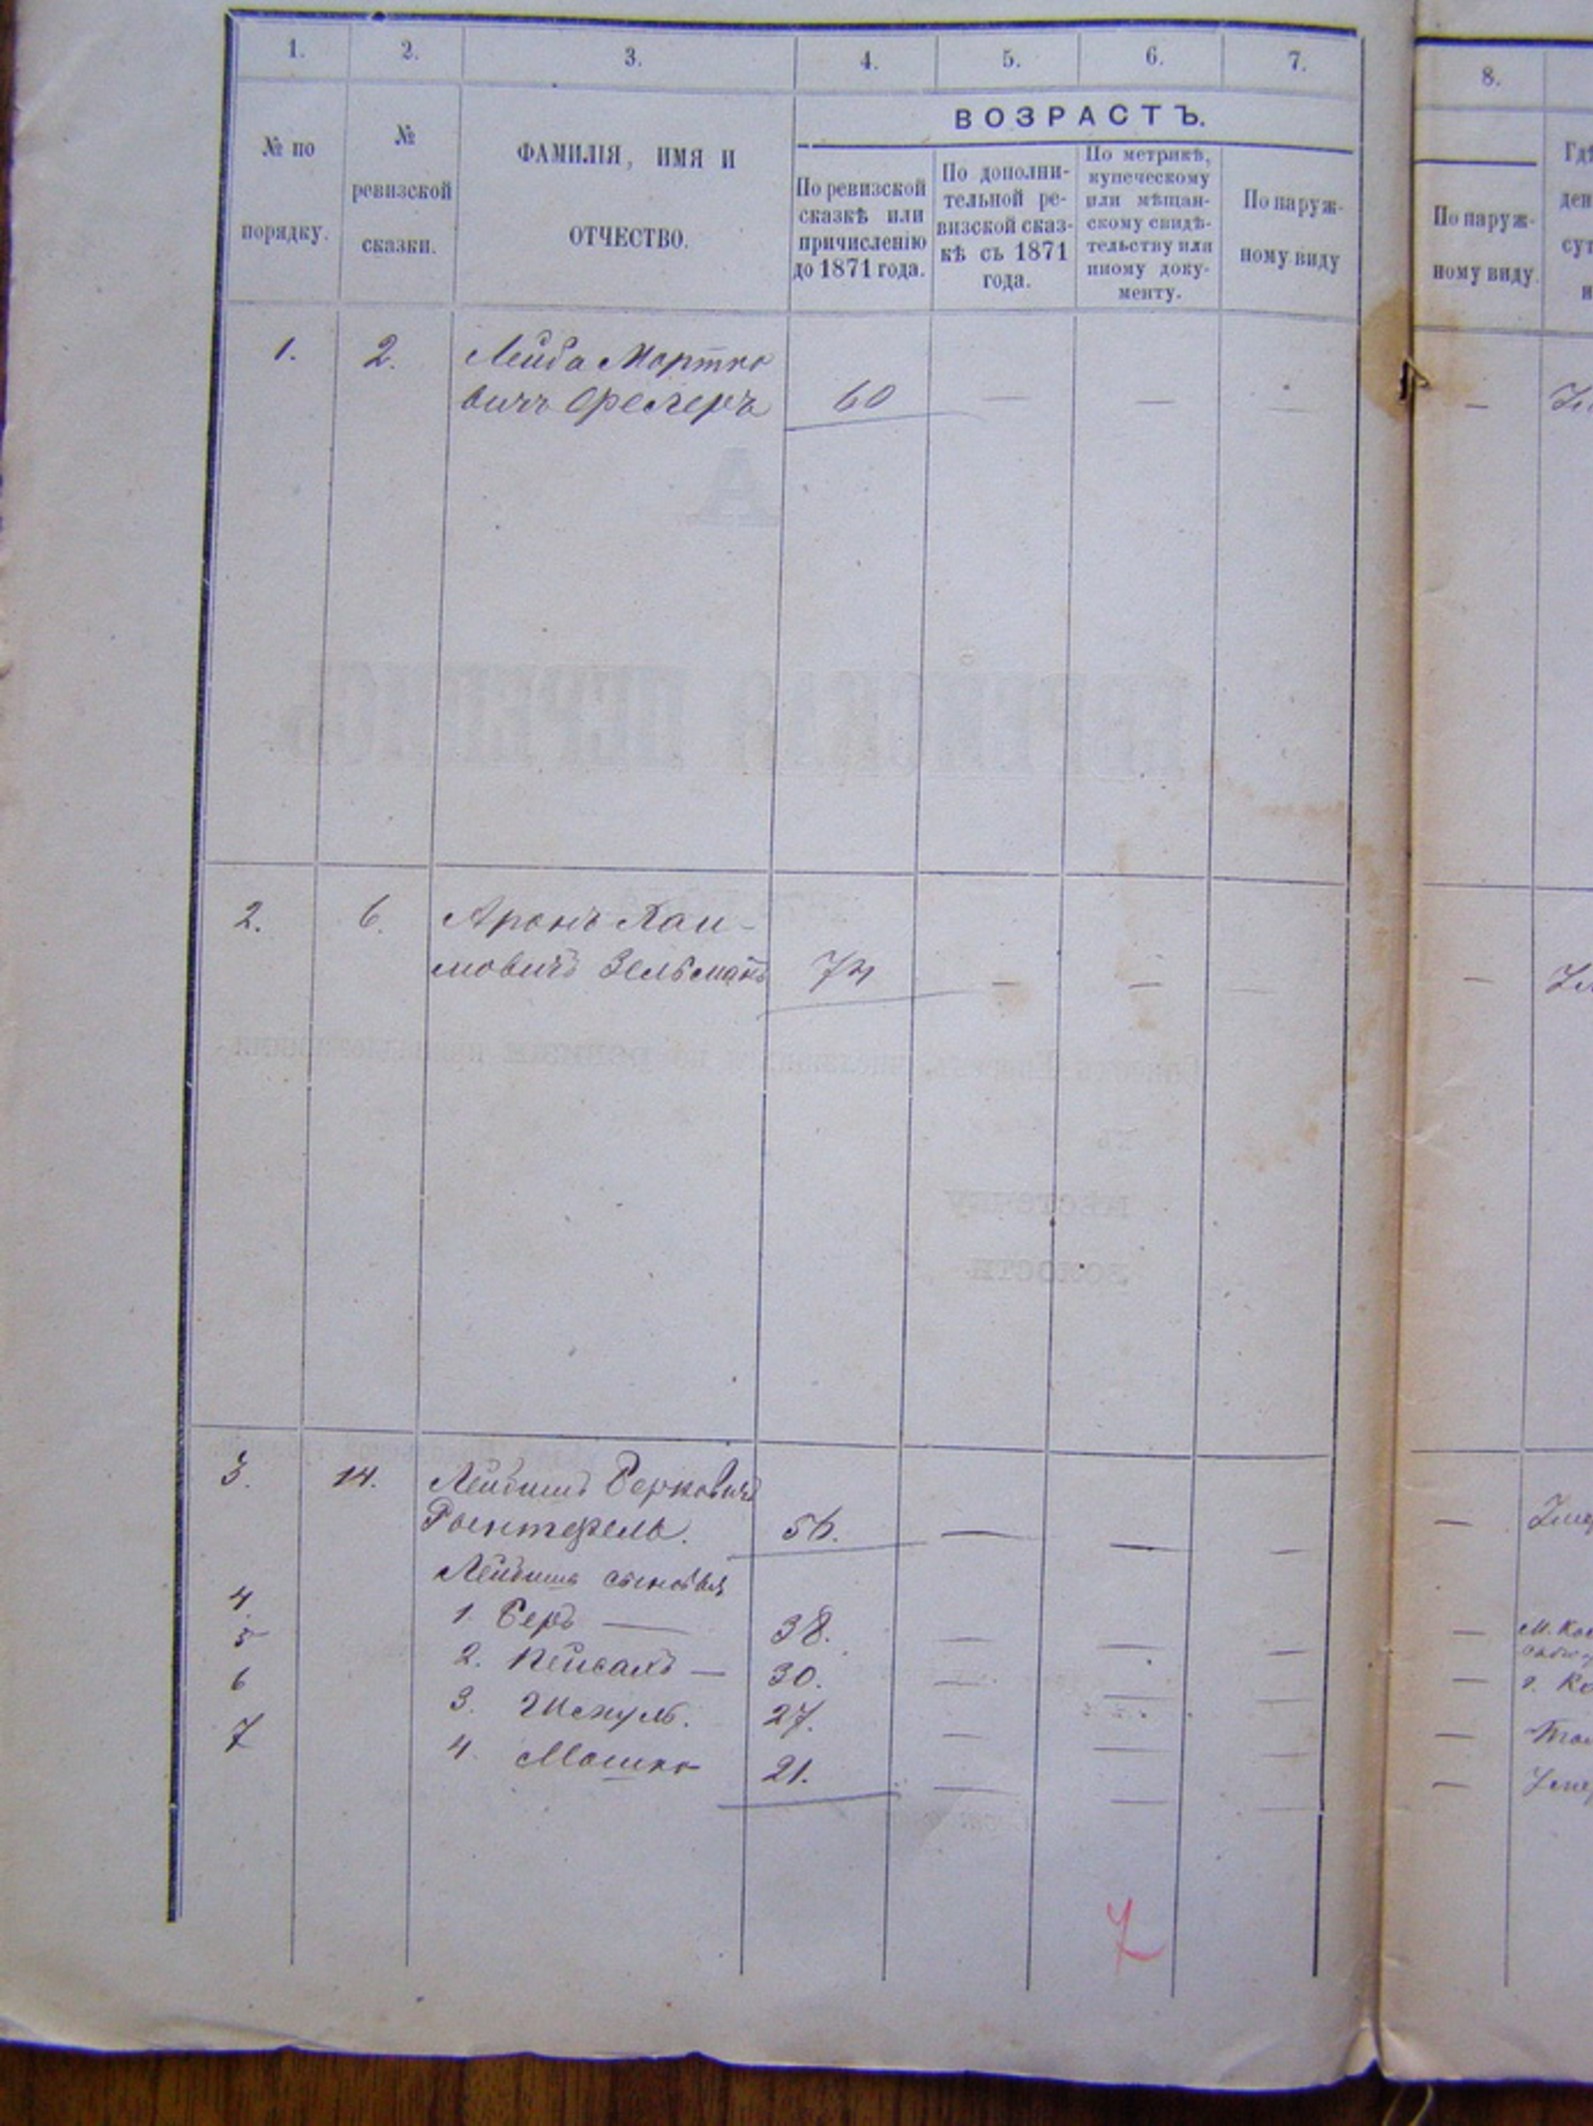 1. 2. 3. 4. 5. 6. 7. 8.
ВОЗРАСТЪ.
№ по
порядку.
№
ревизской
сказки.
ФАМИЛІЯ, ИМЯ И
ОТЧЕСТВО.
По ревизской
сказкѣ или
причисленію
до 1871 года.
По дополни-
тельной ре-
визской сказ-
кѣ съ 1871
года.
По метрикѣ,
купеческому
или мѣщан-
скому свидѣ-
тельству или
иному доку-
менту.
По наруж-
ному виду
По наруж-
ному виду.
1. 2. Лейба Мортко
вичъ 60 — — — —
2. 6. Аронъ Хаи-
мовичъ Зельманъ 74 — — — —
3. 14. Лейбишъ Берковичъ
56. — — — —
Лейбиша сыновья
4 1. Беръ — 38. — — — —
5 2. Пейсахъ — 30. — — — —
6 3. 27. — — — —
7 4. Мошко 21. — — — —
7
ЕВРЕЙСКАЯ ПЕРЕПИСЬ